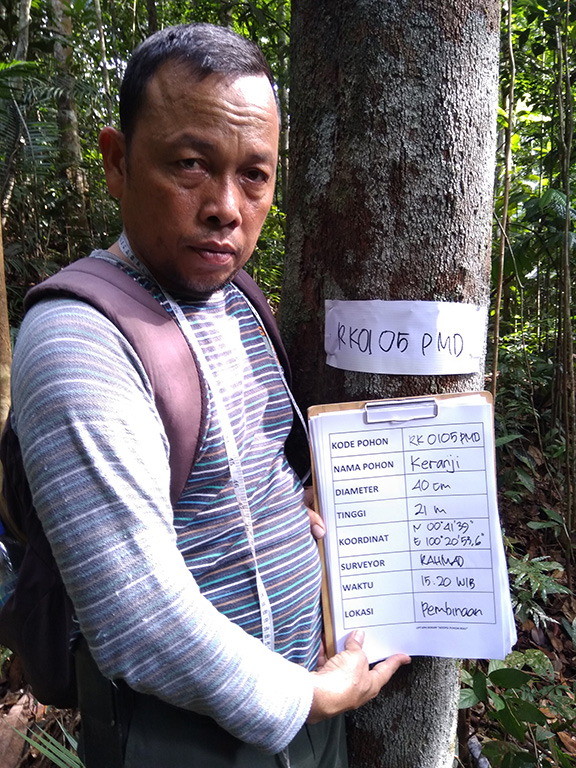 RK0105 PMD
KODE POHON RK 0105 PMD
NAMA POHON Keranji
DIAMETER 40 cm
TINGGI 21 m
KOORDINAT N 00°41'39"
E 100°20'53,6"
SURVEYOR RAHMAD
WAKTU 15.20 WIB
LOKASI Pembinaan